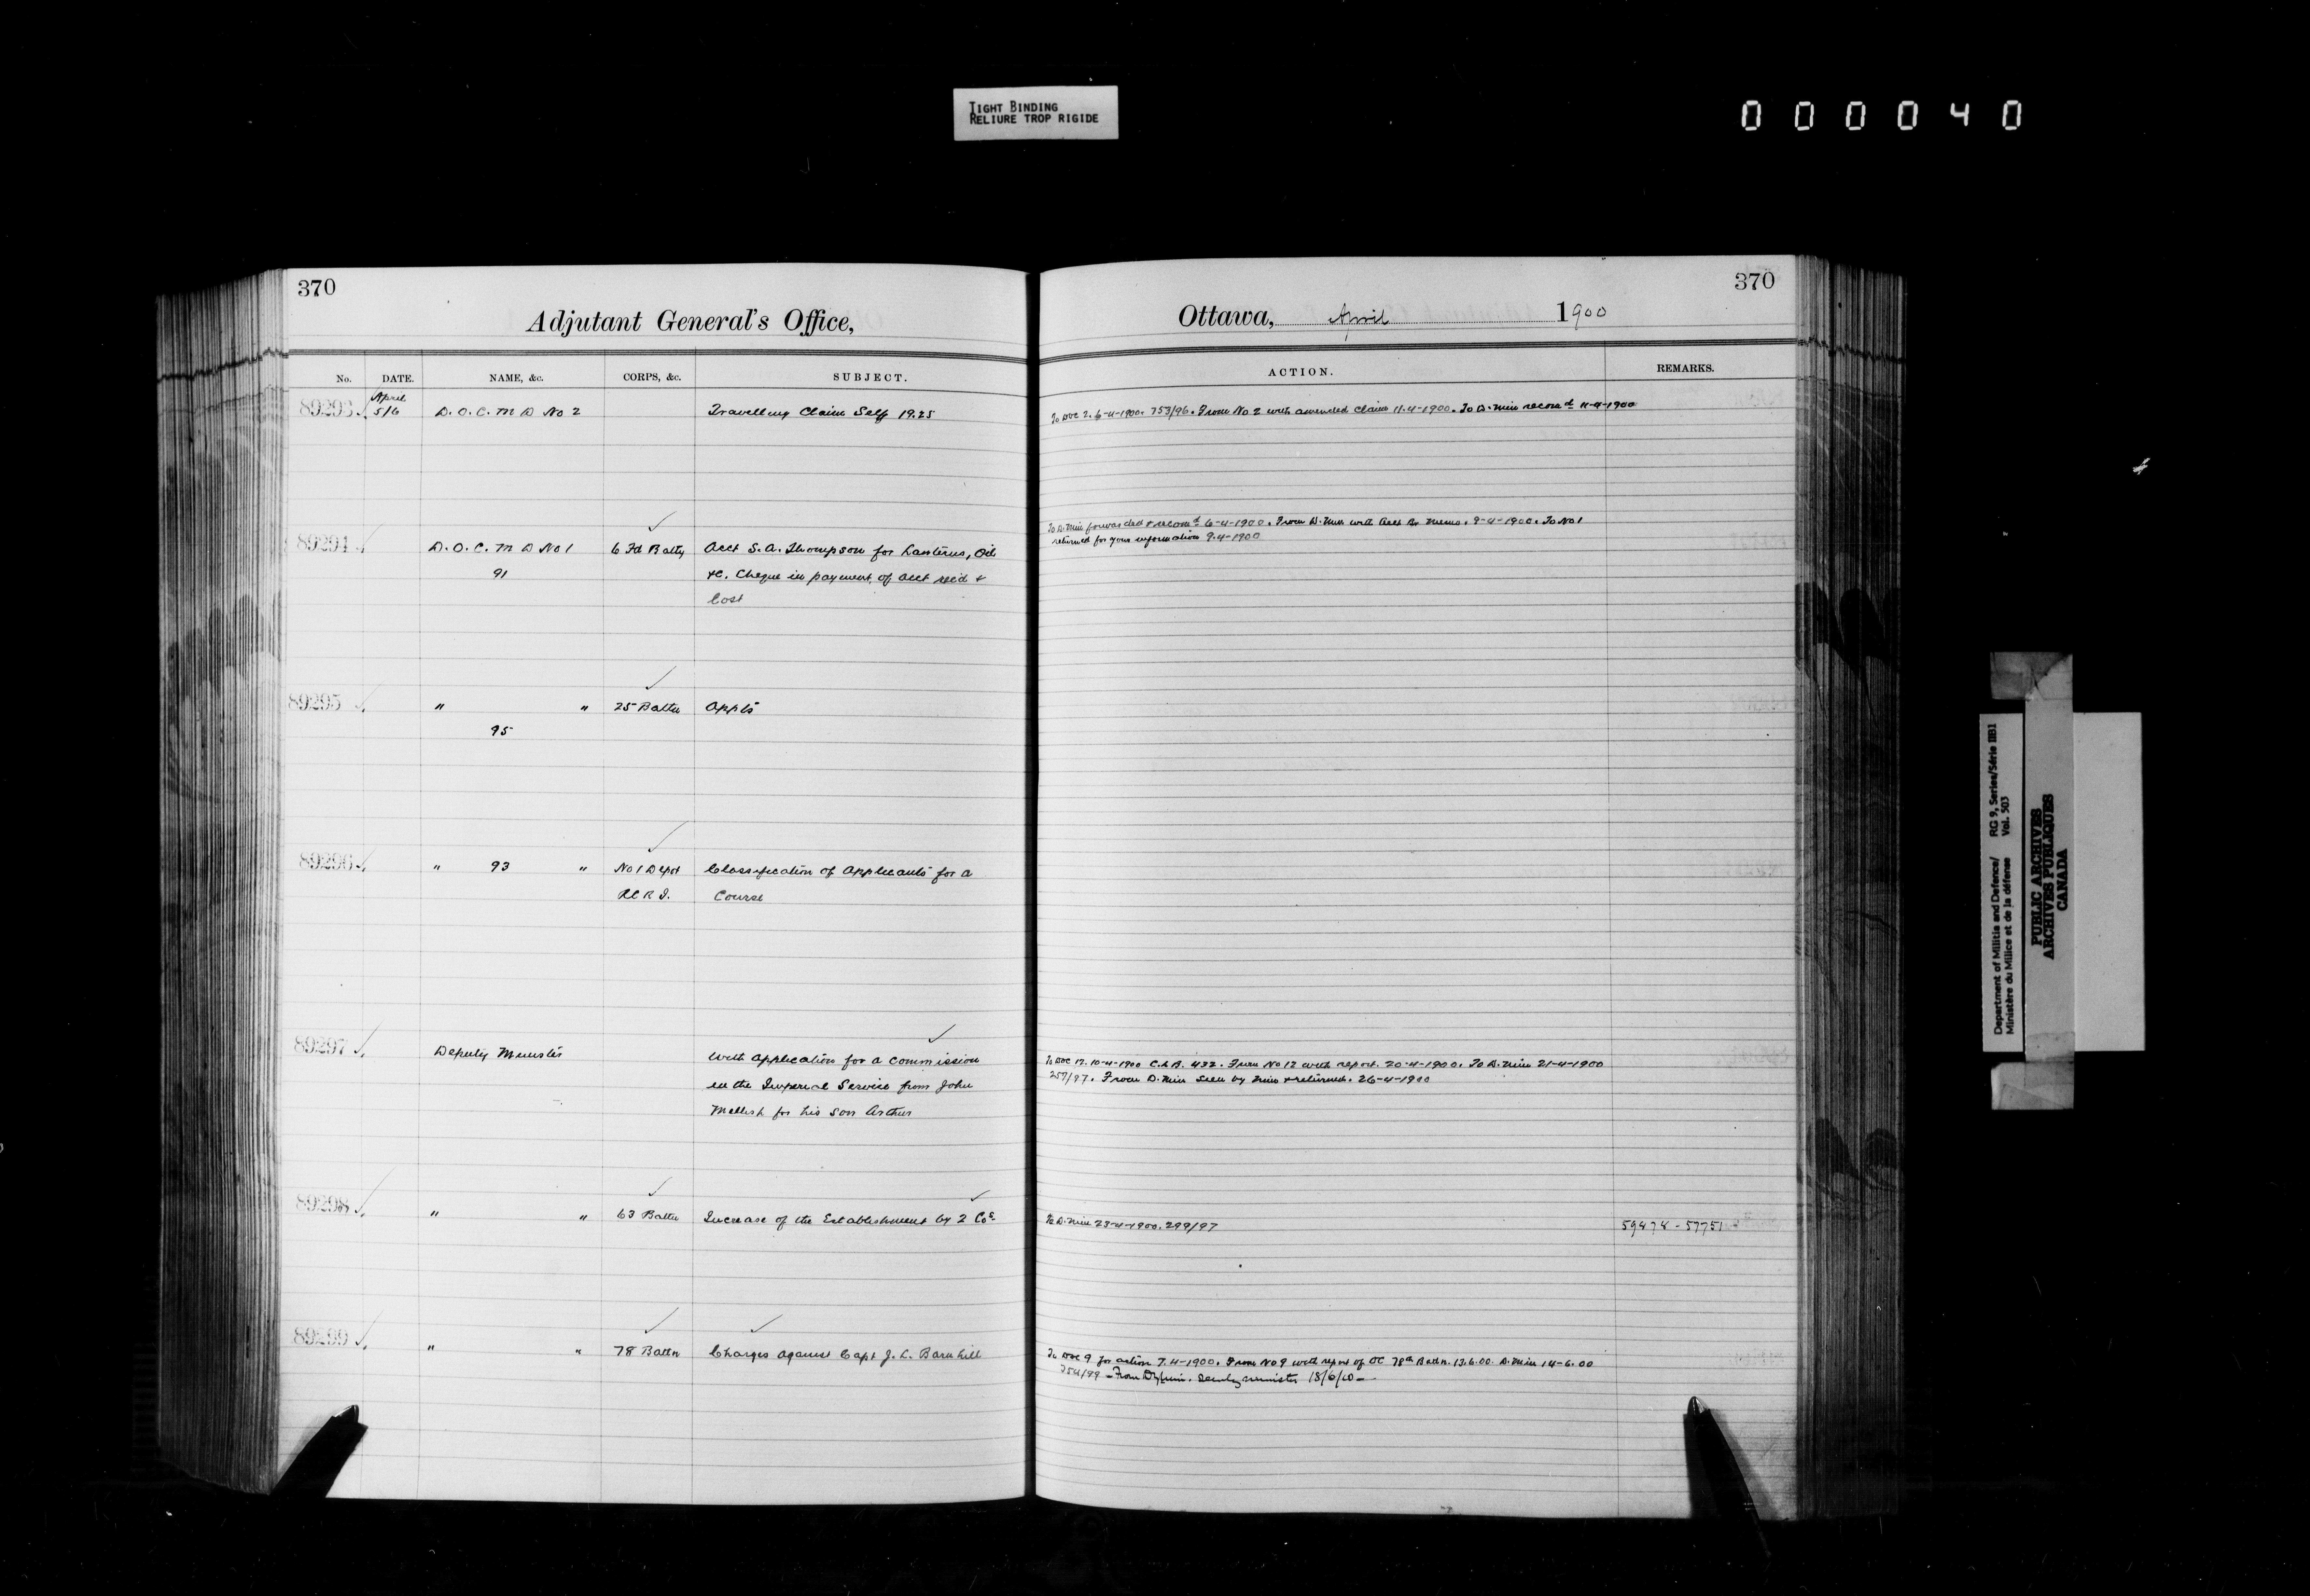 TIGHT BINDING
RELIURE TROP RIGIDE
000040
370
Adjutant General's Office,
No. DATE. NAME, &c. CORPS, &c. SUBJECT.
April
89293 5/6 D.O.C. M D No 2 Travelling Claim Self 19.25
89294 D.O.C. M D No 1 6 Fd Batty Acct S. A. Thompson for Lanterns, Oil
91 &c. Cheque in payment of acct rec'd &
lost
89295 " " 25 Battn Appts
95
89296 " 93 " No 1 Depot Classification of Applicants for a
R.C.R.I. Course
89297 Deputy Minister With application for a commission
in the Imperial Service from John
Mellish for his son Arthur
89298 " " 63 Battn Increase of the Establishment by 2 Cos.
89299 " " 78 Battn Charges against Capt J. L. Barnhill
370
Ottawa, April 1900
ACTION. REMARKS.
To DOC 2. 6-4-1900. 753/96. From No 2 with amended claim 11.4-1900. To D. Min recomd 11-4-1900
To D. Min forwarded & recomd 6-4-1900. From D. Min with acct Br memo. 9-4-1900. To No 1
returned for your information 9.4-1900
To DOC 12. 10-4-1900 C.L.B. 432. From No 12 with report. 20-4-1900. To D. Min 21-4-1900
257/97. From D. Min seen by Min & returned. 26-4-1900
To D. Min 23-4-1900. 299/97 59474-57751
To DOC 9 for action 7.4-1900. From No 9 with report of OC 78th Battn. 13.6.00. D. Min 14-6.00
754/99 - From Dy Min. Seen by minister 18/6/00 -
Department of Militia and Defence/ RG 9, Series/Série IIB1
Ministère du Milice et de la défense Vol. 503
PUBLIC ARCHIVES
ARCHIVES PUBLIQUES
CANADA